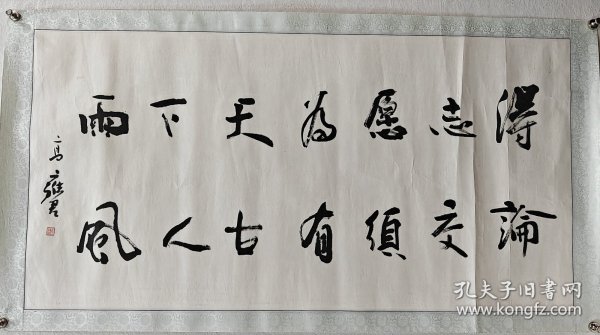 得志愿為天下雨
論交須有古人風
高雍君
孔夫子旧书网
www.kongfz.com